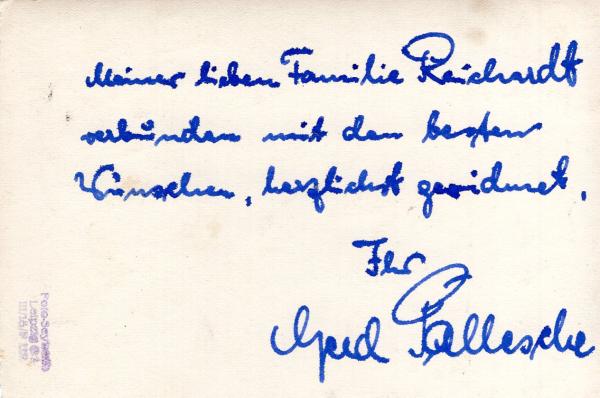 Meiner lieben Familie Reichardt
verbunden mit den besten
Wünschen, herzlichst gewidmet.
Ihr
Gerd Pallesche
Leipzig